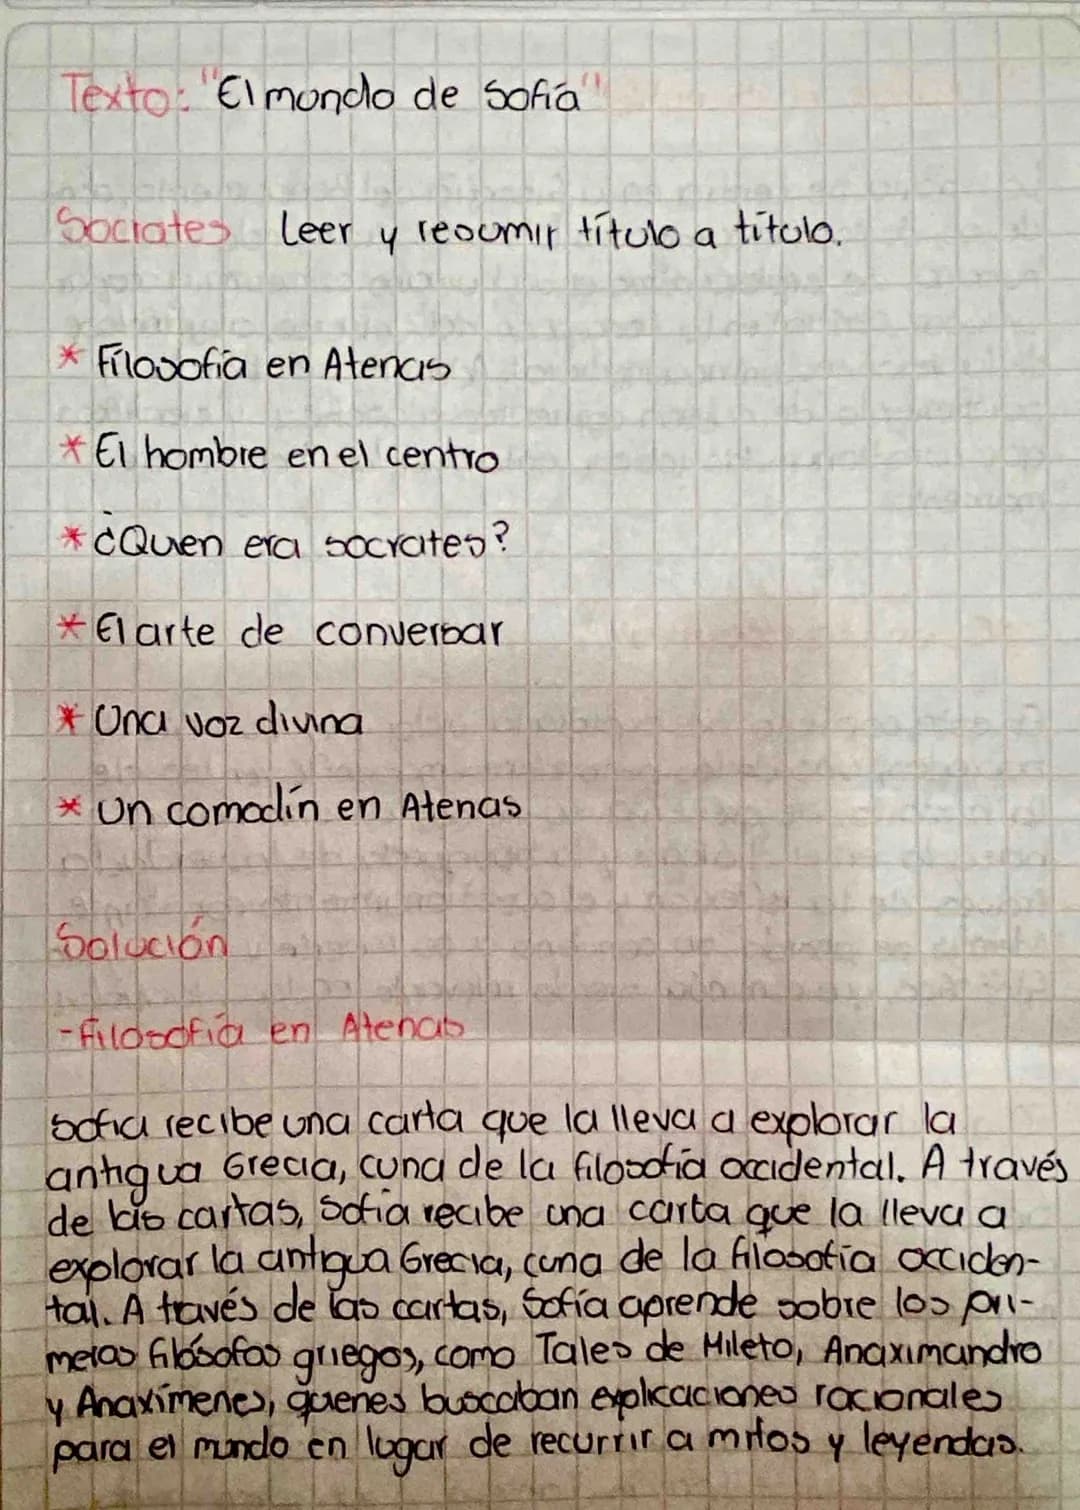 Texto: "El mundo de Sofía"
Socrates Leer y resumir título a título.
* Filosofía en Atenas
* El hombre en el centro
* ¿Quen era socrates?
* El arte de conversar
* Una voz divina
* Un comodín en Atenas
Solución
- Filosofía en Atenas
Sofia recibe una carta que la lleva a explorar la
antigua Grecia, cuna de la filosofía occidental. A través
de las cartas, Sofia recibe una carta que la lleva a
explorar la antigua Grecia, cuna de la filosofía occiden-
tal. A través de las cartas, Sofía aprende sobre los pri-
meros filósofos griegos, como Tales de Mileto, Anaximandro
y Anaxímenes, quienes buscaban explicaciones racionales
para el mundo en lugar de recurrir a mitos y leyendas.